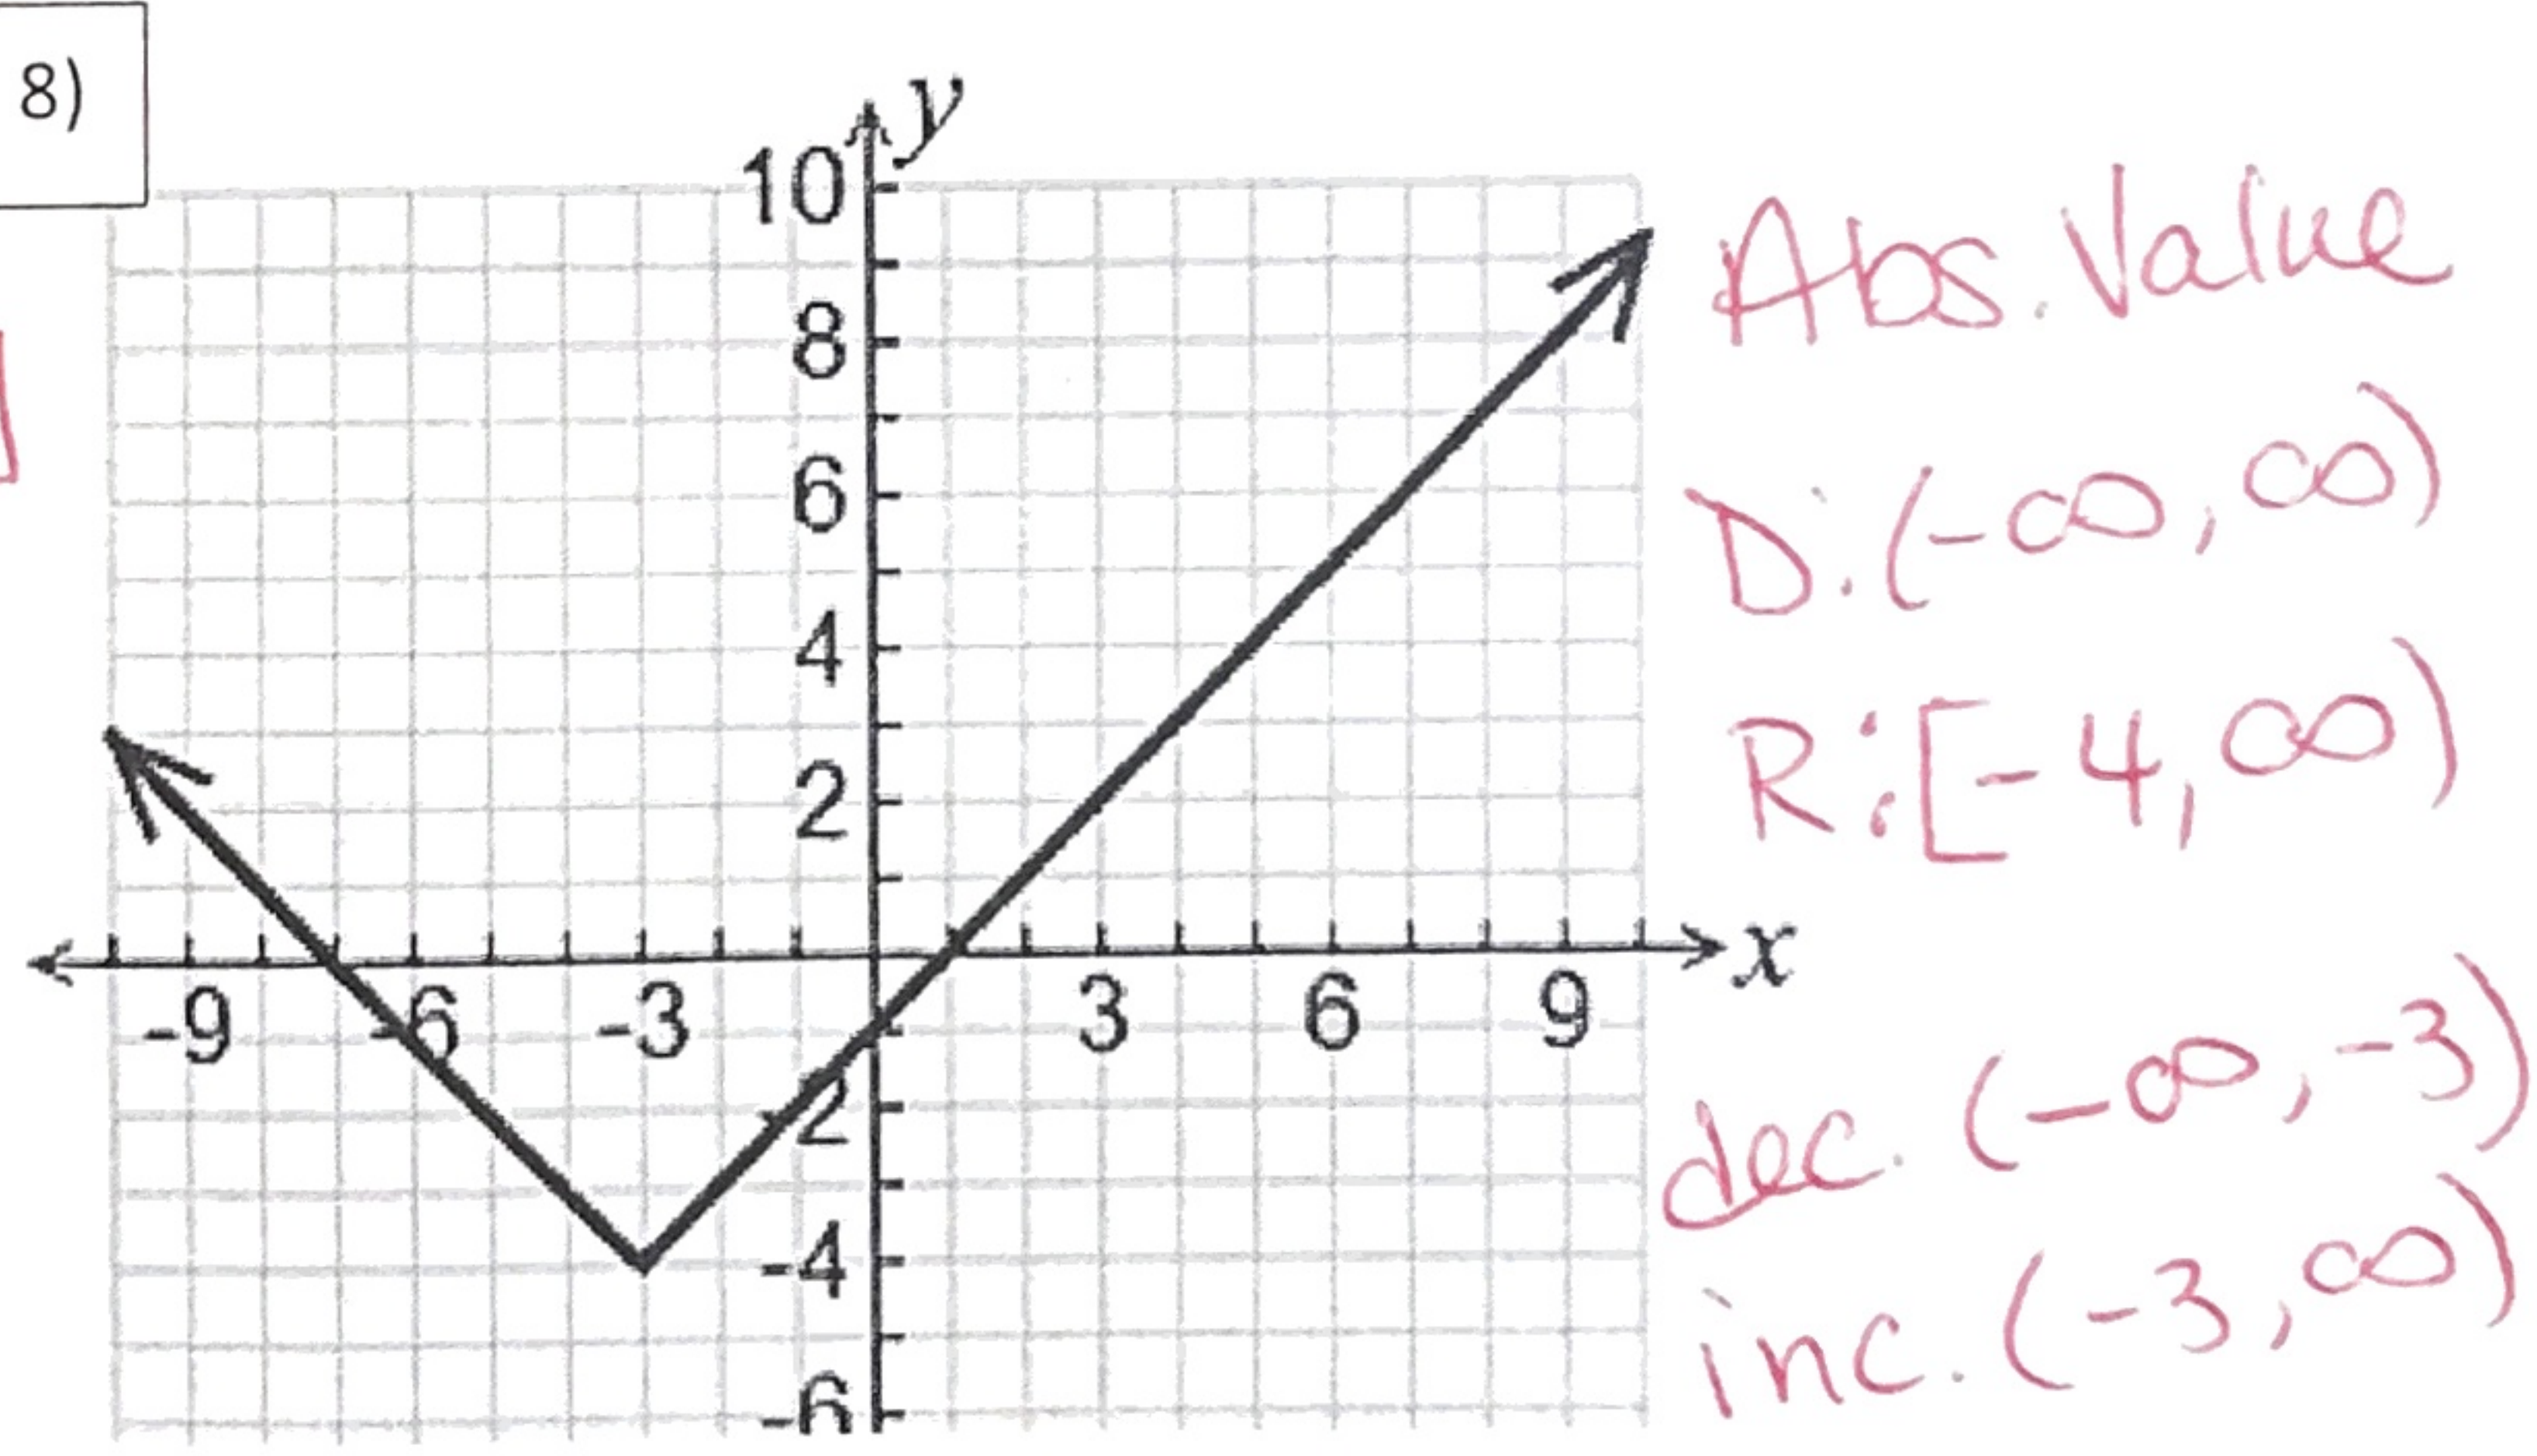 8)
y
10
8
6
4
2
-9 -6 -3 3 6 9 x
-2
-4
-6
Abs. Value
D: (-∞, ∞)
R: [-4, ∞)
dec. (-∞, -3)
inc. (-3, ∞)